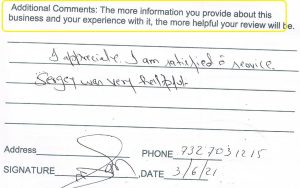 Additional Comments: The more information you provide about this
business and your experience with it, the more helpful your review will be.
I appreciate. I am satisfied c̄ service
Sergey was very helpful.
Address
PHONE 732 703 1215
SIGNATURE
DATE 3/6/21